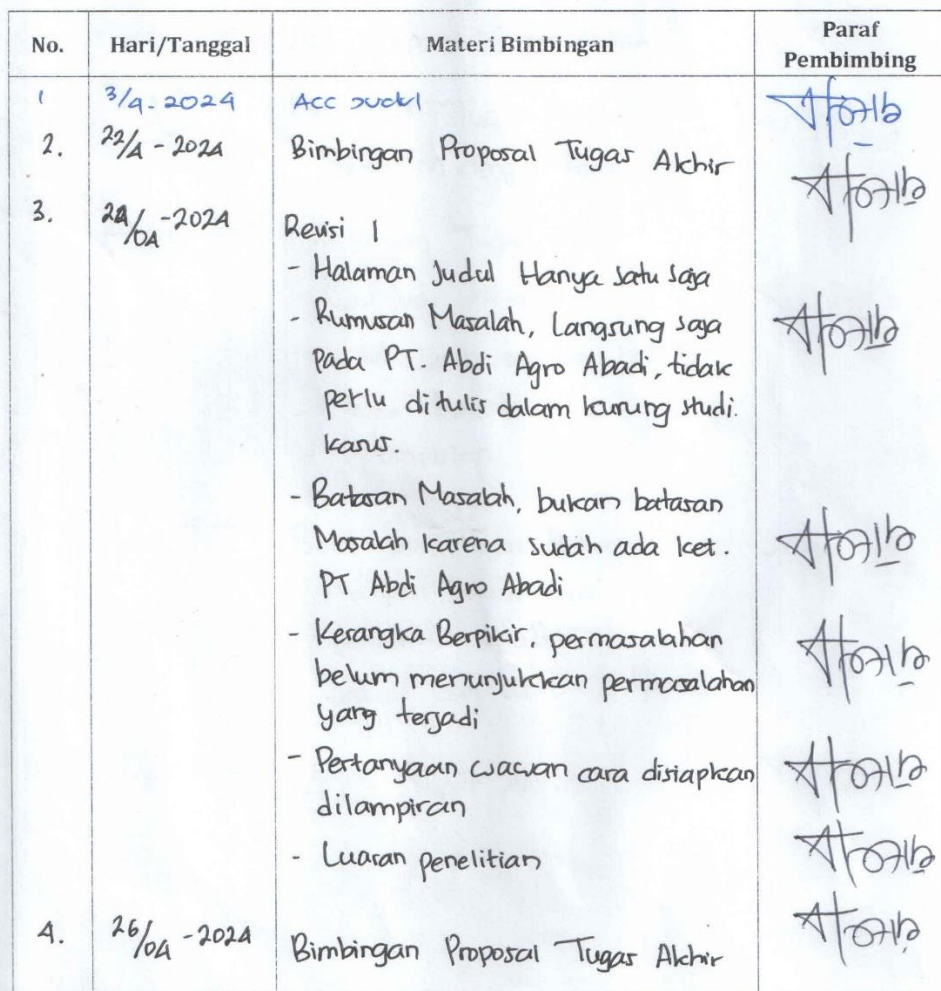 No. Hari/Tanggal Materi Bimbingan Paraf Pembimbing
1 3/4-2024 ACC Judul
2. 22/4-2024 Bimbingan Proposal Tugas Akhir
3. /04-2024 Revisi 1
- Halaman Judul Hanya satu saja
- Rumusan Masalah, Langsung saja
pada PT. Abdi Agro Abadi, tidak
perlu di tulis dalam kurung studi.
kasus.
- Batasan Masalah, bukan batasan
Masalah karena sudah ada ket.
PT Abdi Agro Abadi
- Kerangka Berpikir, permasalahan
belum menunjukkan permasalahan
yang terjadi
- Pertanyaan wawan cara disiapkan
dilampiran
- Luaran penelitian
4. 26/04-2024 Bimbingan Proposal Tugas Akhir